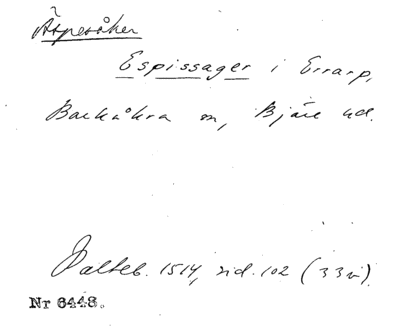 Äspesåker
Espissager i Errarp,
Barkåkra sn, Bjäre hd.
Palteb. 1514, sid. 102 (33v).
Nr 6448.